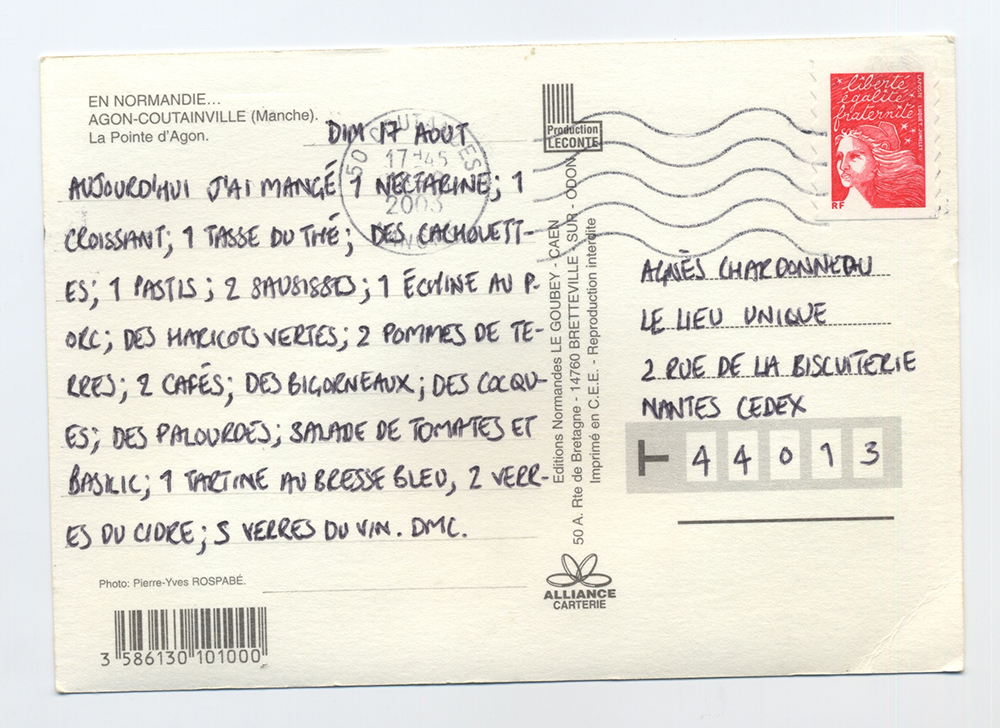 EN NORMANDIE...
AGON-COUTAINVILLE (Manche).
La Pointe d'Agon.
DIM 17 AOUT
AUJOURD'HUI J'AI MANGÉ 1 NECTARINE; 1
CROISSANT; 1 TASSE DU THÉ; DES CACHOUETT-
ES; 1 PASTIS; 2 SAUSISSES; 1 ÉCHINE AU P-
ORC; DES HARICOTS VERTES; 2 POMMES DE TE-
RRES; 2 CAFÉS; DES BIGORNEAUX; DES COCQU-
ES; DES PALOURDES; SALADE DE TOMATES ET
BASILIC; 1 TARTINE AU BRESSE BLEU, 2 VERR-
ES DU CIDRE; 5 VERRES DU VIN. DMC.
Photo: Pierre-Yves ROSPABÉ.
3 586130 101000
50
17 H45
2003
Production
LECONTE
Editions Normandes LE GOUBEY - CAEN
50 A. Rte de Bretagne - 14760 BRETTEVILLE - SUR - ODON
Imprimé en C.E.E. - Reproduction interdite
ALLIANCE
CARTERIE
liberté
égalité
fraternité
LA POSTE
RF
AGNÈS CHARDONNEAU
LE LIEU UNIQUE
2 RUE DE LA BISCUITERIE
NANTES CEDEX
44013